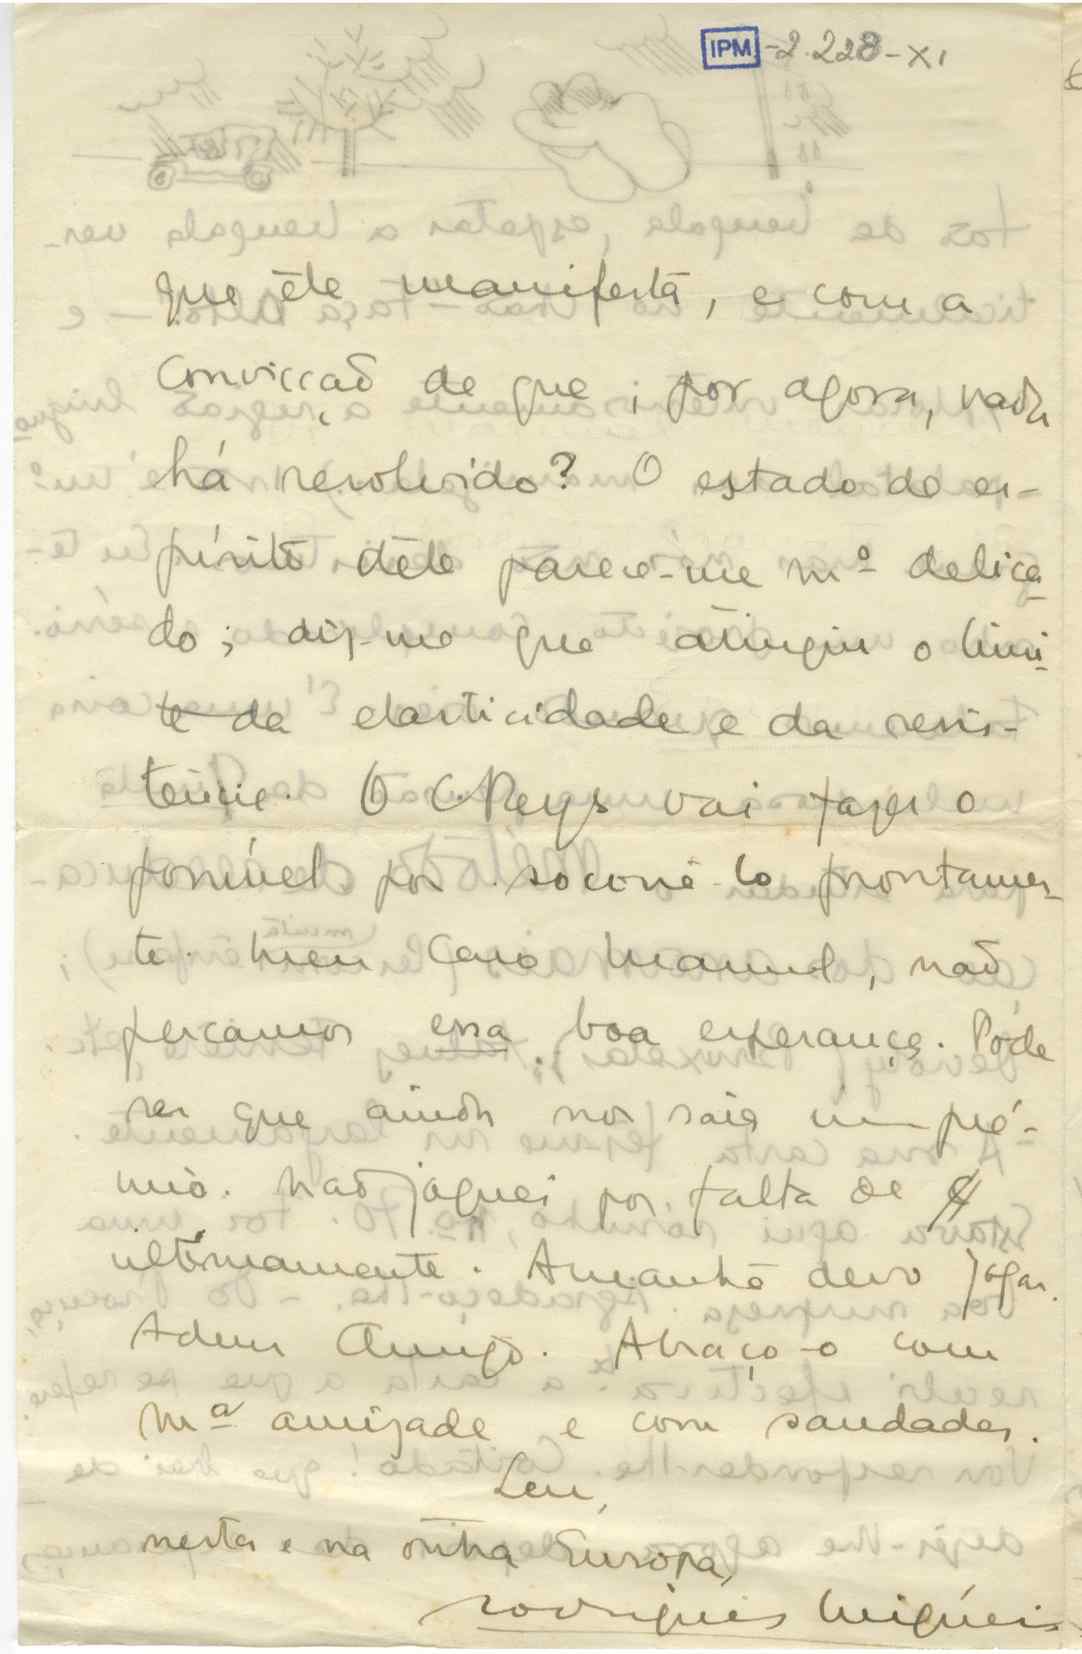 IPM-2.228-XI
que êle manifesta, e com a
convicção de que, por agora, nada
há resolvido? O estado de es-
pírito dêle parece-me mº delica-
do; diz-me que atingiu o limi-
te da elasticidade e da resis-
tência. O C. Reys vai fazer o
possível por socorrê-lo prontamen-
te. Meu Caro Manuel, não
percamos essa boa esperança. Póde
ser que ainda nos saia um pré-
mio. Não joguei por falta de $
ùltimamente. Amanhã devo jogar.
Adeus Amigo. Abraço-o com
mª amizade e com saudades.
Seu,
nesta e na outra Europa,
Rodrigues Miguéis